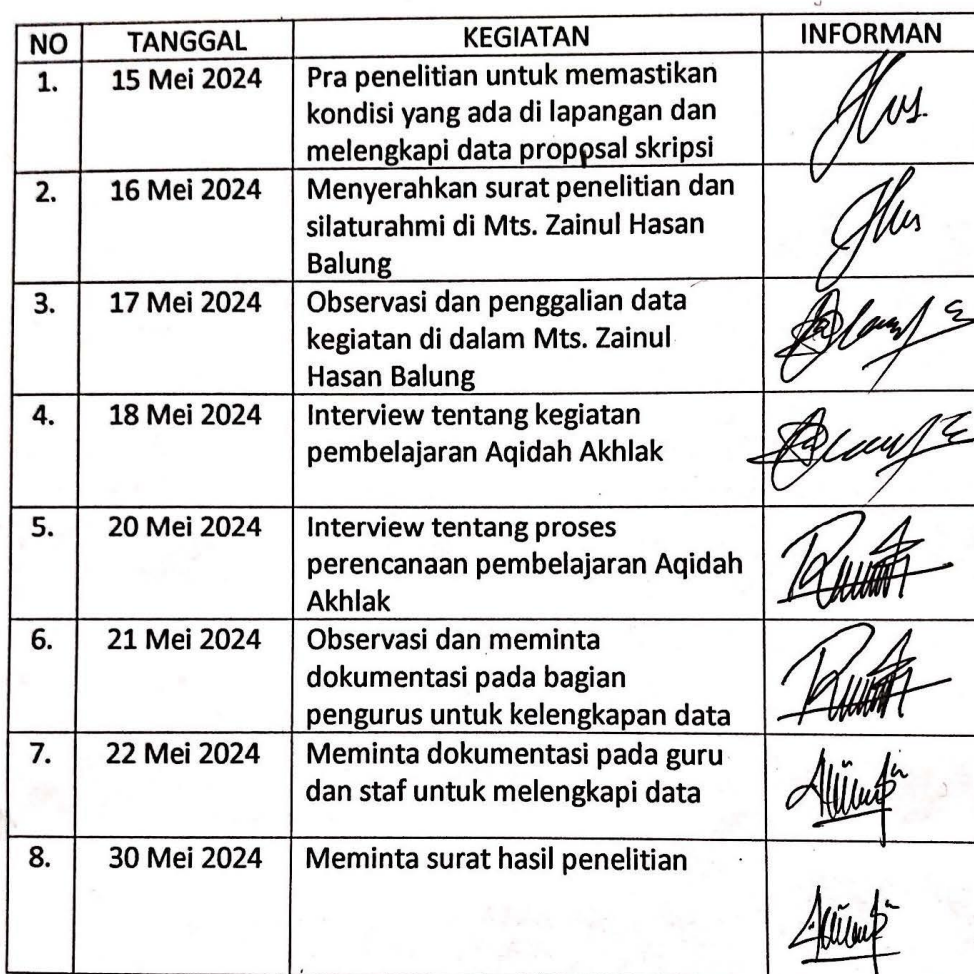 NO TANGGAL KEGIATAN INFORMAN
1. 15 Mei 2024 Pra penelitian untuk memastikan
kondisi yang ada di lapangan dan
melengkapi data proposal skripsi
2. 16 Mei 2024 Menyerahkan surat penelitian dan
silaturahmi di Mts. Zainul Hasan
Balung
3. 17 Mei 2024 Observasi dan penggalian data
kegiatan di dalam Mts. Zainul
Hasan Balung
4. 18 Mei 2024 Interview tentang kegiatan
pembelajaran Aqidah Akhlak
5. 20 Mei 2024 Interview tentang proses
perencanaan pembelajaran Aqidah
Akhlak
6. 21 Mei 2024 Observasi dan meminta
dokumentasi pada bagian
pengurus untuk kelengkapan data
7. 22 Mei 2024 Meminta dokumentasi pada guru
dan staf untuk melengkapi data
8. 30 Mei 2024 Meminta surat hasil penelitian